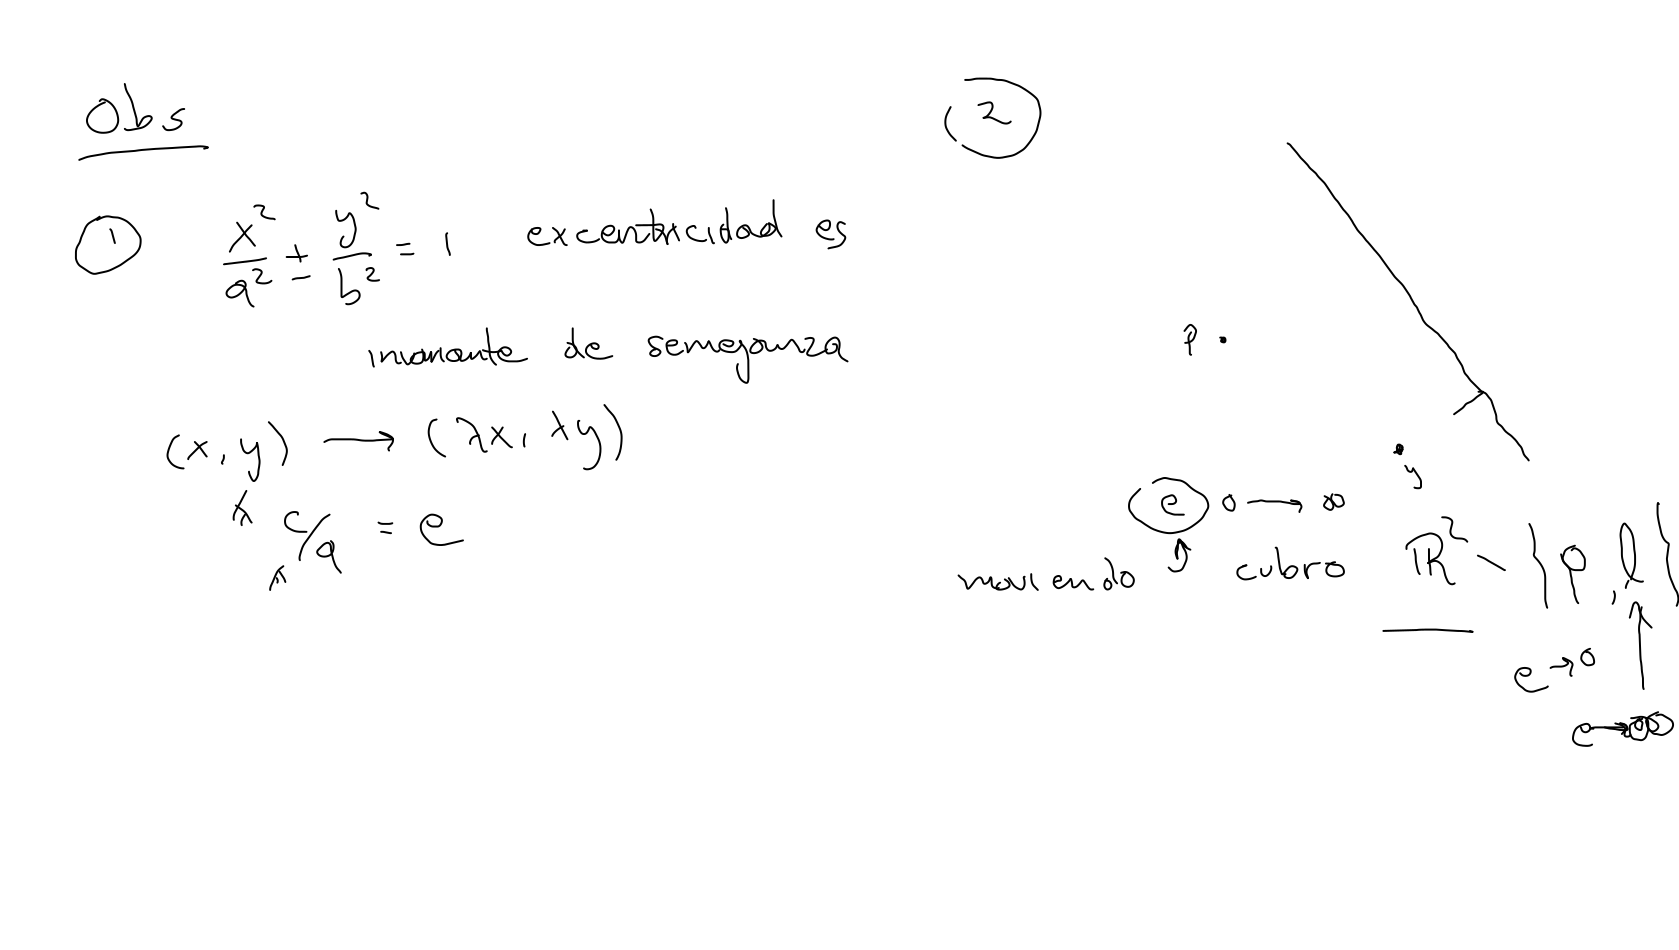 Obs
① x²/a² ± y²/b² = 1 excentricidad es
invariante de semejanza
(x, y) → (λx, λy)
λc/λa = e
②
p .
. y
e 0 → ∞
moviendo ↑ cubro ℝ² \ {p, l}
e → 0
e → ∞